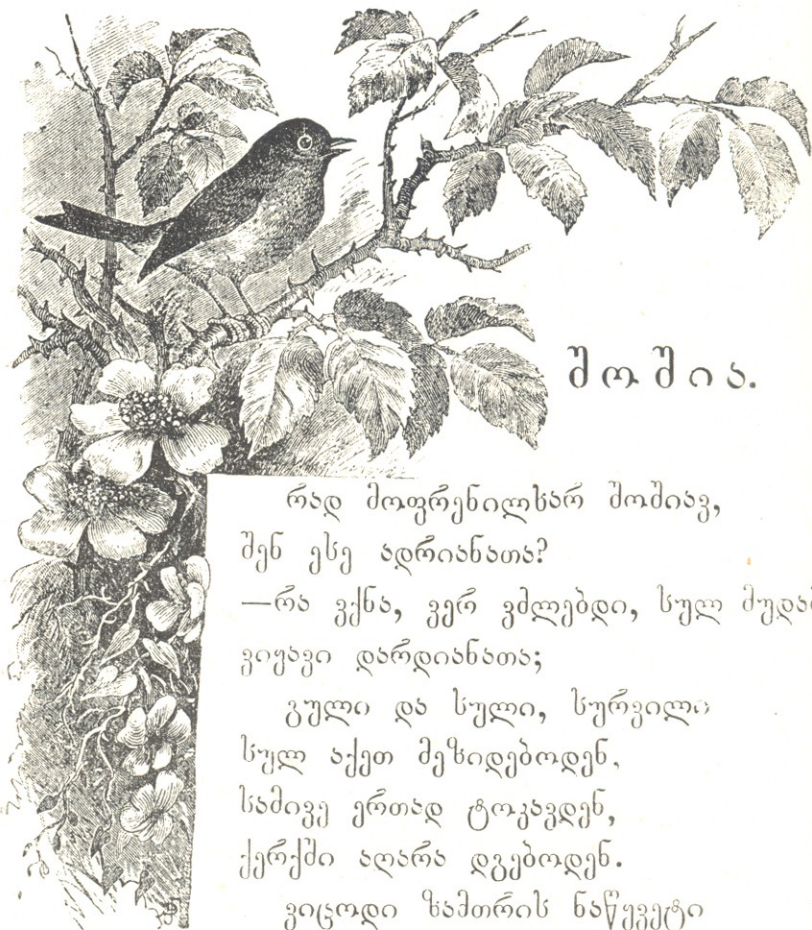 შოშია.
რად მოფრენილხარ შოშიავ,
შენ ესე ადრიანათა?
—რა ვქნა, ვერ ვძლებდი, სულ მუდამ
ვიყავი დარდიანათა;
გული და სული, სურვილი
სულ აქეთ მეზიდებოდენ,
სამივე ერთად ტოკავდენ,
ქერქში აღარა დგებოდენ.
ვიცოდი ზამთრის ნაწყვეტი